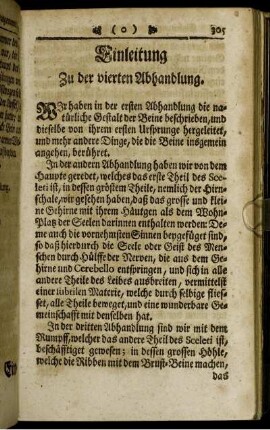 ( 0 ) 305
Einleitung
Zu der vierten Abhandlung.
Wir haben in der ersten Abhandlung die na-
türliche Gestalt der Beine beschrieben, und
dieselbe von ihrem ersten Ursprunge hergeleitet,
und mehr andere Dinge, die die Beine insgemein
angehen, berühret.
In der andern Abhandlung haben wir von dem
Haupte geredet, welches das erste Theil des Sce-
leti ist, in dessen gröstem Theile, nemlich der Hirn-
schale, wir gesehen haben, daß das grosse und klei-
ne Gehirne mit ihrem Häutgen als dem Wohn-
Platz der Seelen darinnen enthalten werden: De-
me auch die vornehmsten Sinnen beygefüget sind,
so daß hierdurch die Seele oder Geist des Men-
schen durch Hülffe der Nerven, die aus dem Ge-
hirne und Cerebello entspringen, und sich in alle
andere Theile des Leibes ausbreiten, vermittelst
einer subtilen Materie, welche durch selbige flies-
set, alle Theile beweget, und eine wunderbare Ge-
meinschafft mit denselben hat.
In der dritten Abhandlung sind wir mit dem
Rumpff, welcher das andere Theil des Sceleti ist,
beschäfftiget gewesen; in dessen grossen Höhle,
welche die Ribben mit dem Brust-Beine machen,
das